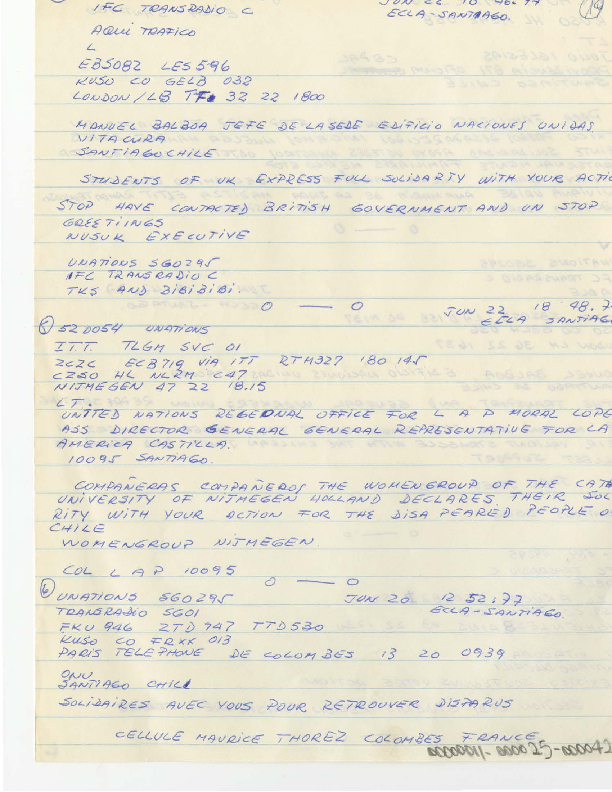 IFC TRANSRADIO C
ECLA-SANTIAGO.
19
AQUI TRAFICO
L
EBS082 LES596
KUSO CO GELB 032
LONDON/LB TF 32 22 1800
MANUEL BALBOA JEFE DE LA SEDE EDIFICIO NACIONES UNIDAS
VITACURA
SANTIAGOCHILE
STUDENTS OF UK EXPRESS FULL SOLIDARTY WITH YOUR ACTIO
STOP HAVE CONTACTED BRITISH GOVERNMENT AND UN STOP
GREETIINGS
NUSUK EXECUTIVE
UNATIONS SG0295
IFC TRANSRADIO C
TKS AND BIBIBIBI.
O — O
JUN 22 18 48.7
ECLA SANTIAGO
5 520054 UNATIONS
I.T.T. TLGM SVC 01
ZCZC ECB719 VIA ITT RTM327 180 145
CZSO HL NLRM C47
NITMEGEN 47 22 18.15
LT.
UNITED NATIONS REGEONAL OFFICE FOR L A P MORAL LOPE
ASS DIRECTOR GENERAL GENERAL REPRESENTATIVE FOR LA
AMERICA CASTILLA.
10095 SANTIAGO.
COMPAÑERAS COMPAÑEROS THE WOMENGROUP OF THE CATH
UNIVERSITY OF NITMEGEN HOLLAND DECLARES THEIR SOL
RITY WITH YOUR ACTION FOR THE DISA PEARED PEOPLE O
CHILE
WOMENGROUP NITMEGEN.
COL L A P 10095
O — O
6
UNATIONS SG0295 JUN 20 12 52:77
TRANSRADIO SG01 ECLA-SANTIAGO.
FKU 946 ZTD 747 TTD530
KUSO CO FRXX 013
PARIS TELEPHONE DE COLOMBES 13 20 0939
ONU
SANTIAGO CHILI
SOLIDAIRES AVEC VOUS POUR RETROUVER DISPARUS
CELLULE MAURICE THOREZ COLOMBES FRANCE
0000011-000025-000042